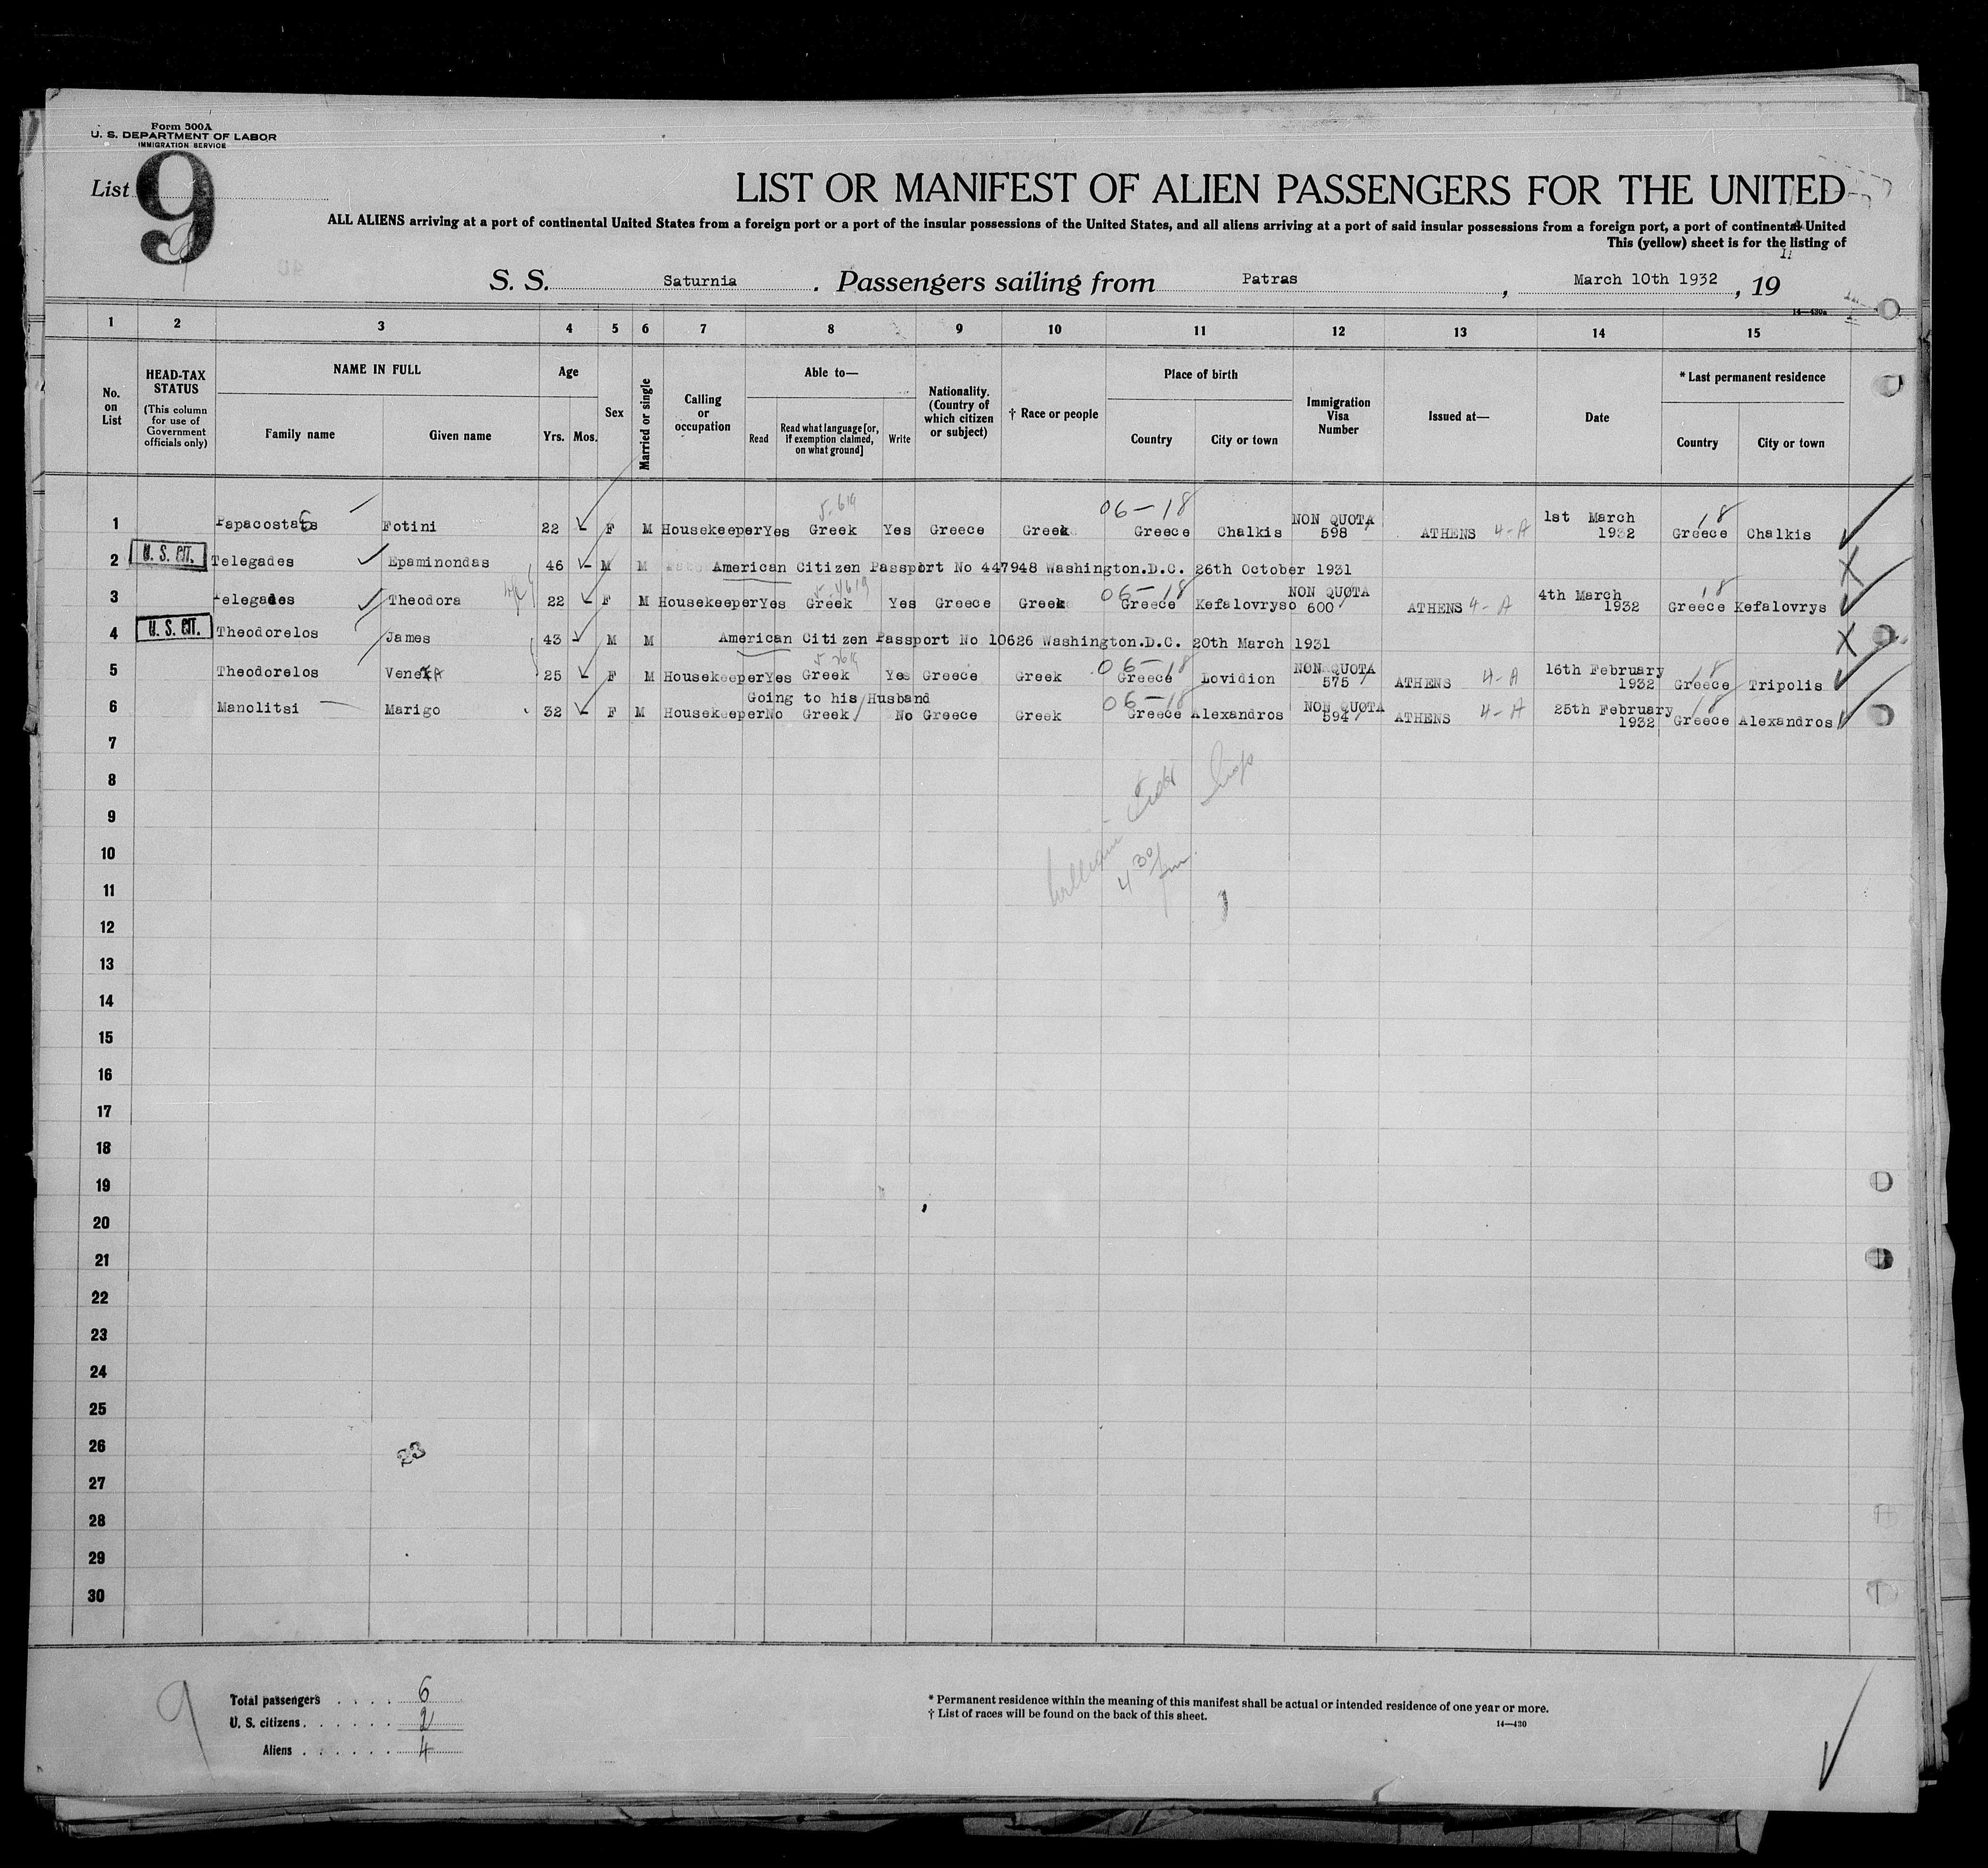 Form 500A
U. S. DEPARTMENT OF LABOR
IMMIGRATION SERVICE
List 9
LIST OR MANIFEST OF ALIEN PASSENGERS FOR THE UNITED
ALL ALIENS arriving at a port of continental United States from a foreign port or a port of the insular possessions of the United States, and all aliens arriving at a port of said insular possessions from a foreign port, a port of continental United
This (yellow) sheet is for the listing of
S. S. Saturnia . Passengers sailing from Patras , March 10th 1932 , 19
14—430a
1 2 3 4 5 6 7 8 9 10 11 12 13 14 15
No. on List
HEAD-TAX STATUS
(This column for use of Government officials only)
NAME IN FULL
Family name Given name
Age
Yrs. Mos.
Sex
Married or single
Calling or occupation
Able to—
Read
Read what language [or, if exemption claimed, on what ground]
Write
Nationality. (Country of which citizen or subject)
† Race or people
Place of birth
Country City or town
Immigration Visa Number
Issued at—
Date
* Last permanent residence
Country City or town
06—18 18
1 Fotini 22 F M Housekeeper Yes Greek Yes Greece Greek Greece Chalkis NON QUOTA 598 ATHENS 4-A 1st March 1932 Greece Chalkis
2 U. S. CIT. Telegades Epaminondas 46 M M American Citizen Passport No 447948 Washington.D.C. 26th October 1931
06—18 18
3 Telegades Theodora 22 F M Housekeeper Yes Greek Yes Greece Greek Greece Kefalovryso NON QUOTA 600 ATHENS 4-A 4th March 1932 Greece Kefalovrys
4 U. S. CIT. Theodorelos James 43 M M American Citizen Passport No 10626 Washington.D.C. 20th March 1931
06—18 18
5 Theodorelos 25 F M Housekeeper Yes Greek Yes Greece Greek Greece Lovidion NON QUOTA 575 ATHENS 4-A 16th February 1932 Greece Tripolis
Going to his Husband
06—18 18
6 Manolitsi Marigo 32 F M Housekeeper No Greek No Greece Greek Greece Alexandros NON QUOTA 594 ATHENS 4-A 25th February 1932 Greece Alexandros
7
8
9
10
4 30 pm
11
12
13
14
15
16
17
18
19
20
21
22
23
24
25
26
23
27
28
29
30
9
Total passengers . . . . 6
U. S. citizens. . . . . . 2
Aliens . . . . . . 4
* Permanent residence within the meaning of this manifest shall be actual or intended residence of one year or more.
† List of races will be found on the back of this sheet.
14—430